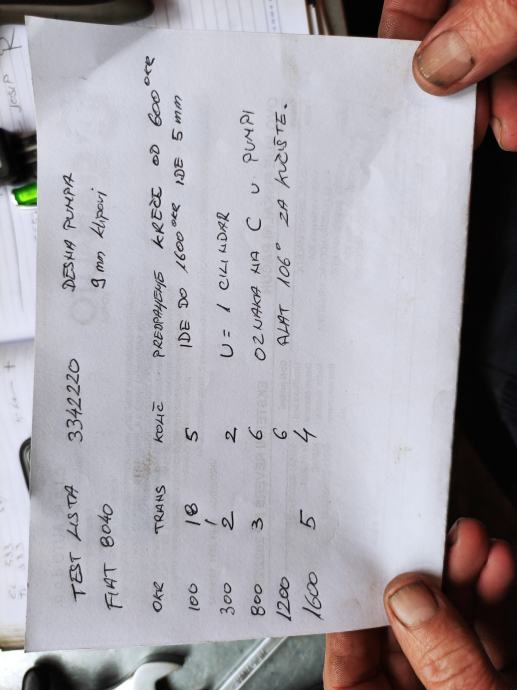 TEST LISTA 3342220 DESNA PUMPA
FIAT 8040 9 mm klipovi
OKR TRANS KOLIČ PREDPALJENJE KREĆE OD 600 OKR
100 18 5 IDE DO 1600 OKR IDE 5 mm
300 2 2 U = 1 CILINDAR
800 3 6 OZNAKA NA C U PUMPI
1200 6 ALAT 106° ZA KUČIŠTE.
1600 5 4